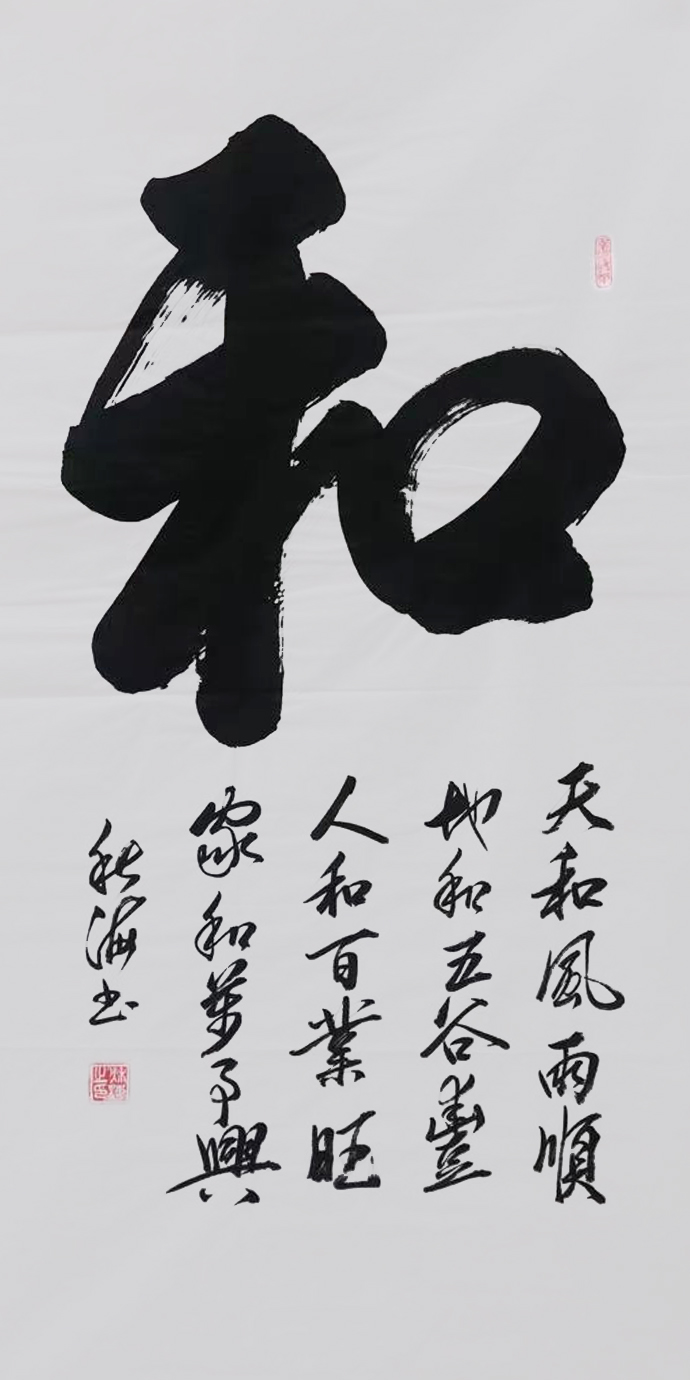 和
天和風雨順
地和五谷豐
人和百業旺
家和萬事興
秋海书